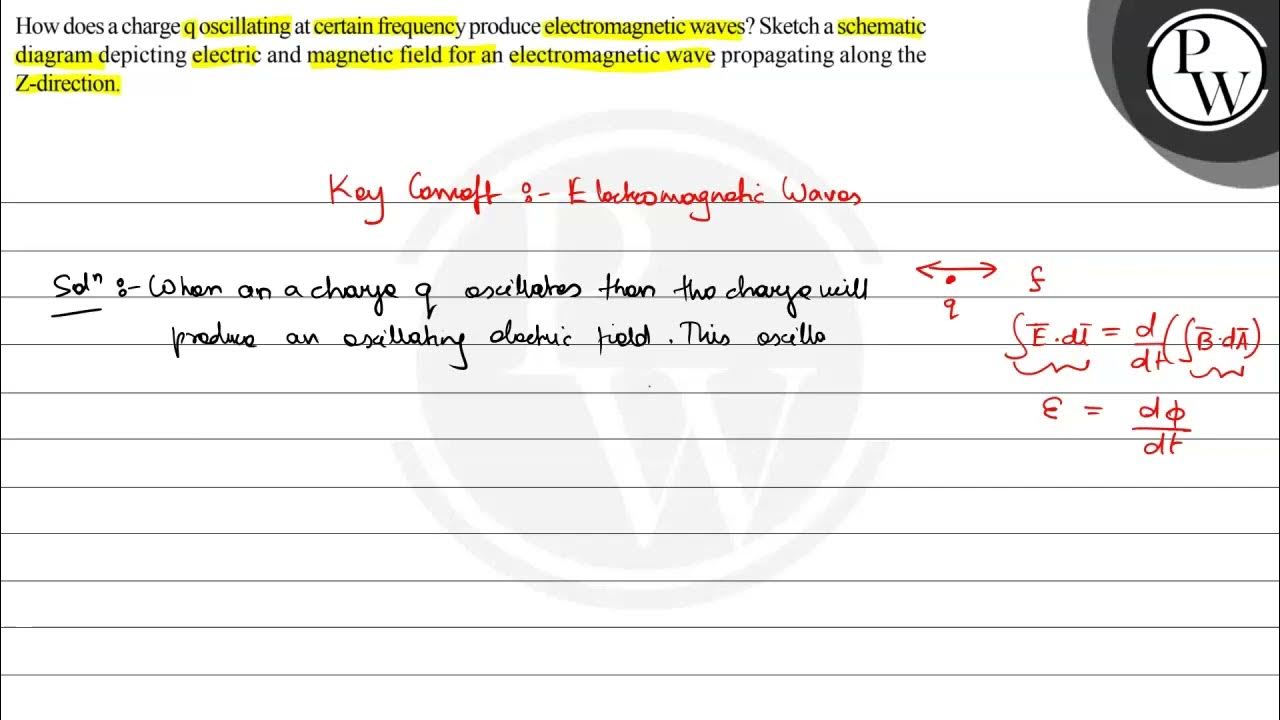 How does a charge q oscillating at certain frequency produce electromagnetic waves? Sketch a schematic
diagram depicting electric and magnetic field for an electromagnetic wave propagating along the
Z-direction.
P
W
Key Concept :- Electromagnetic Waves
Solⁿ :- When an a charge q oscillates then the charge will
produce an oscillating electric field. This oscilla
q
f
∫E̅·dl̅ = d/dt(∫B̅·dA̅)
ε = dϕ/dt